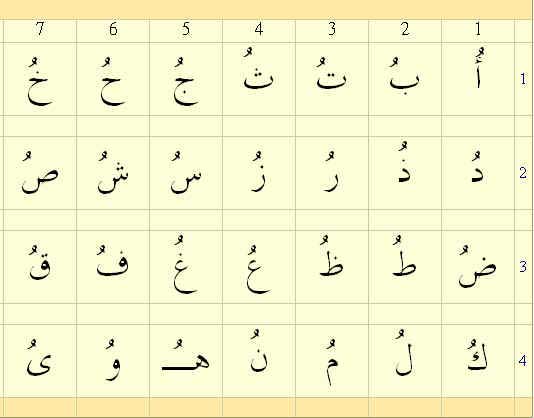 1 2 3 4 5 6 7
1 أُ بُ تُ ثُ جُ حُ خُ
2 دُ ذُ رُ زُ سُ شُ صُ
3 ضُ طُ ظُ عُ غُ فُ قُ
4 كُ لُ مُ نُ هـُ وُ ىُ